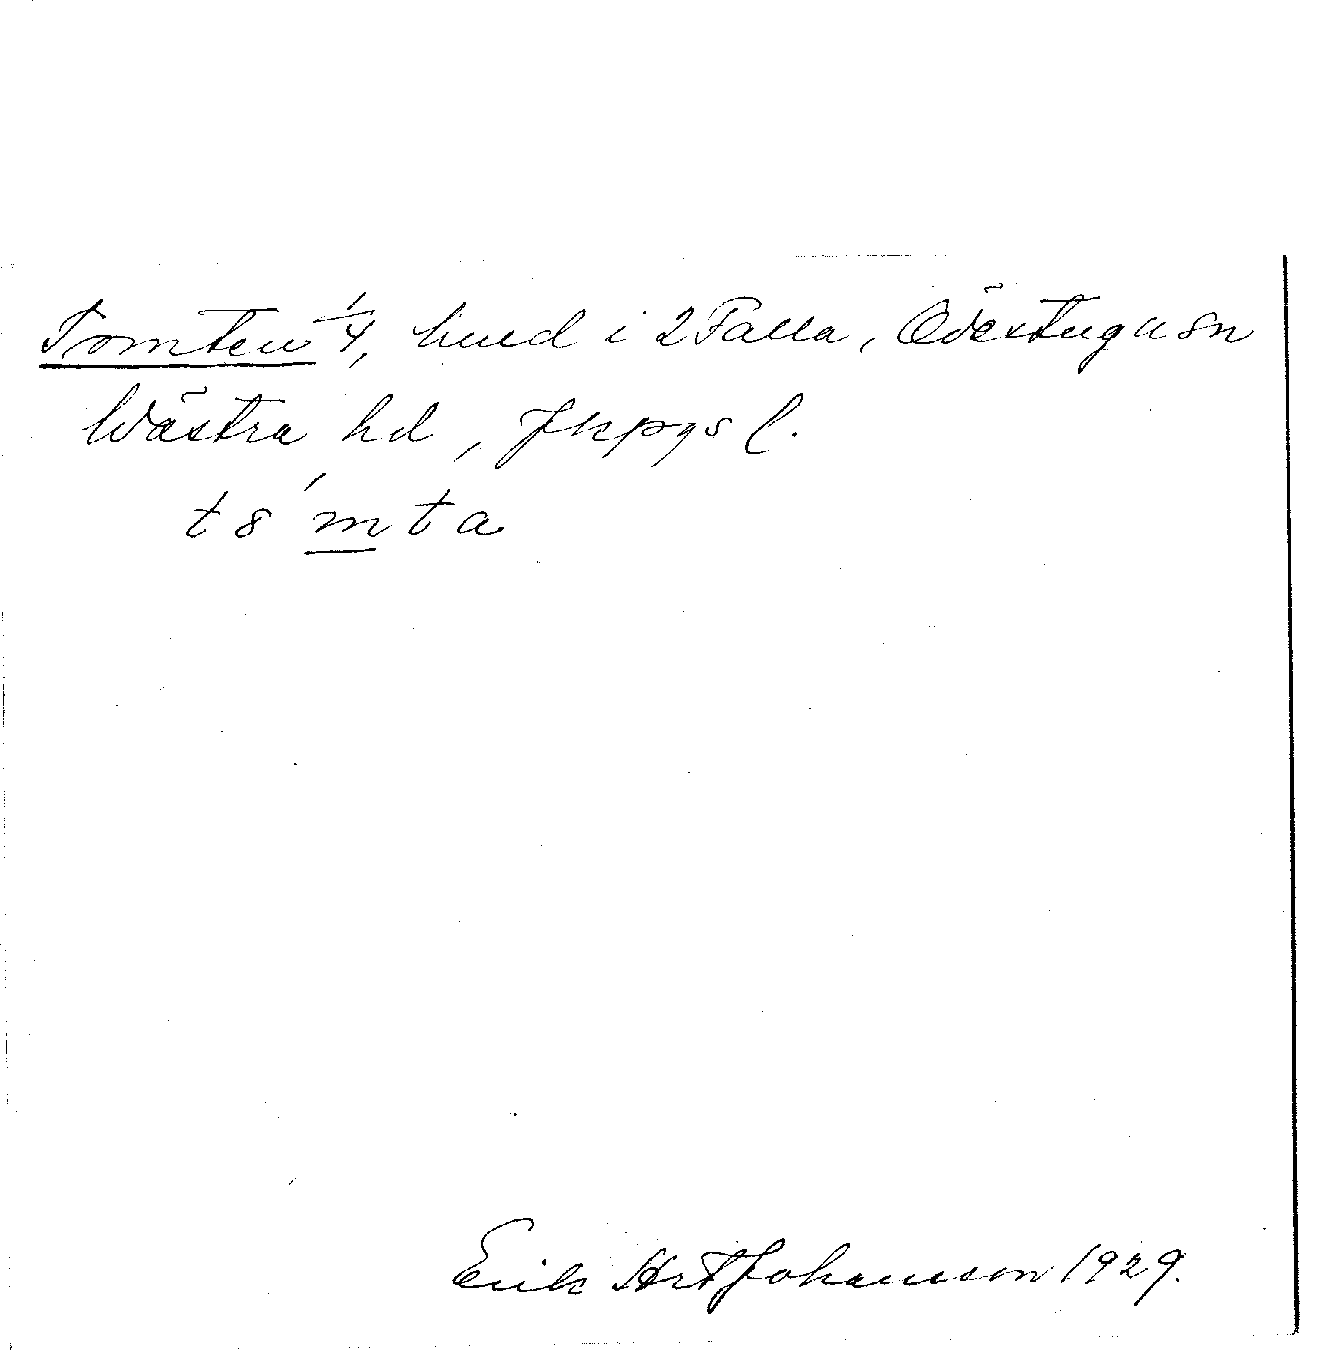 Tomten 1/4, hmd i 2 Talla, Ödestugu sn
Västra hd, Jkpgs l.
t8́mta
Erik Hrt Johansson 1929.